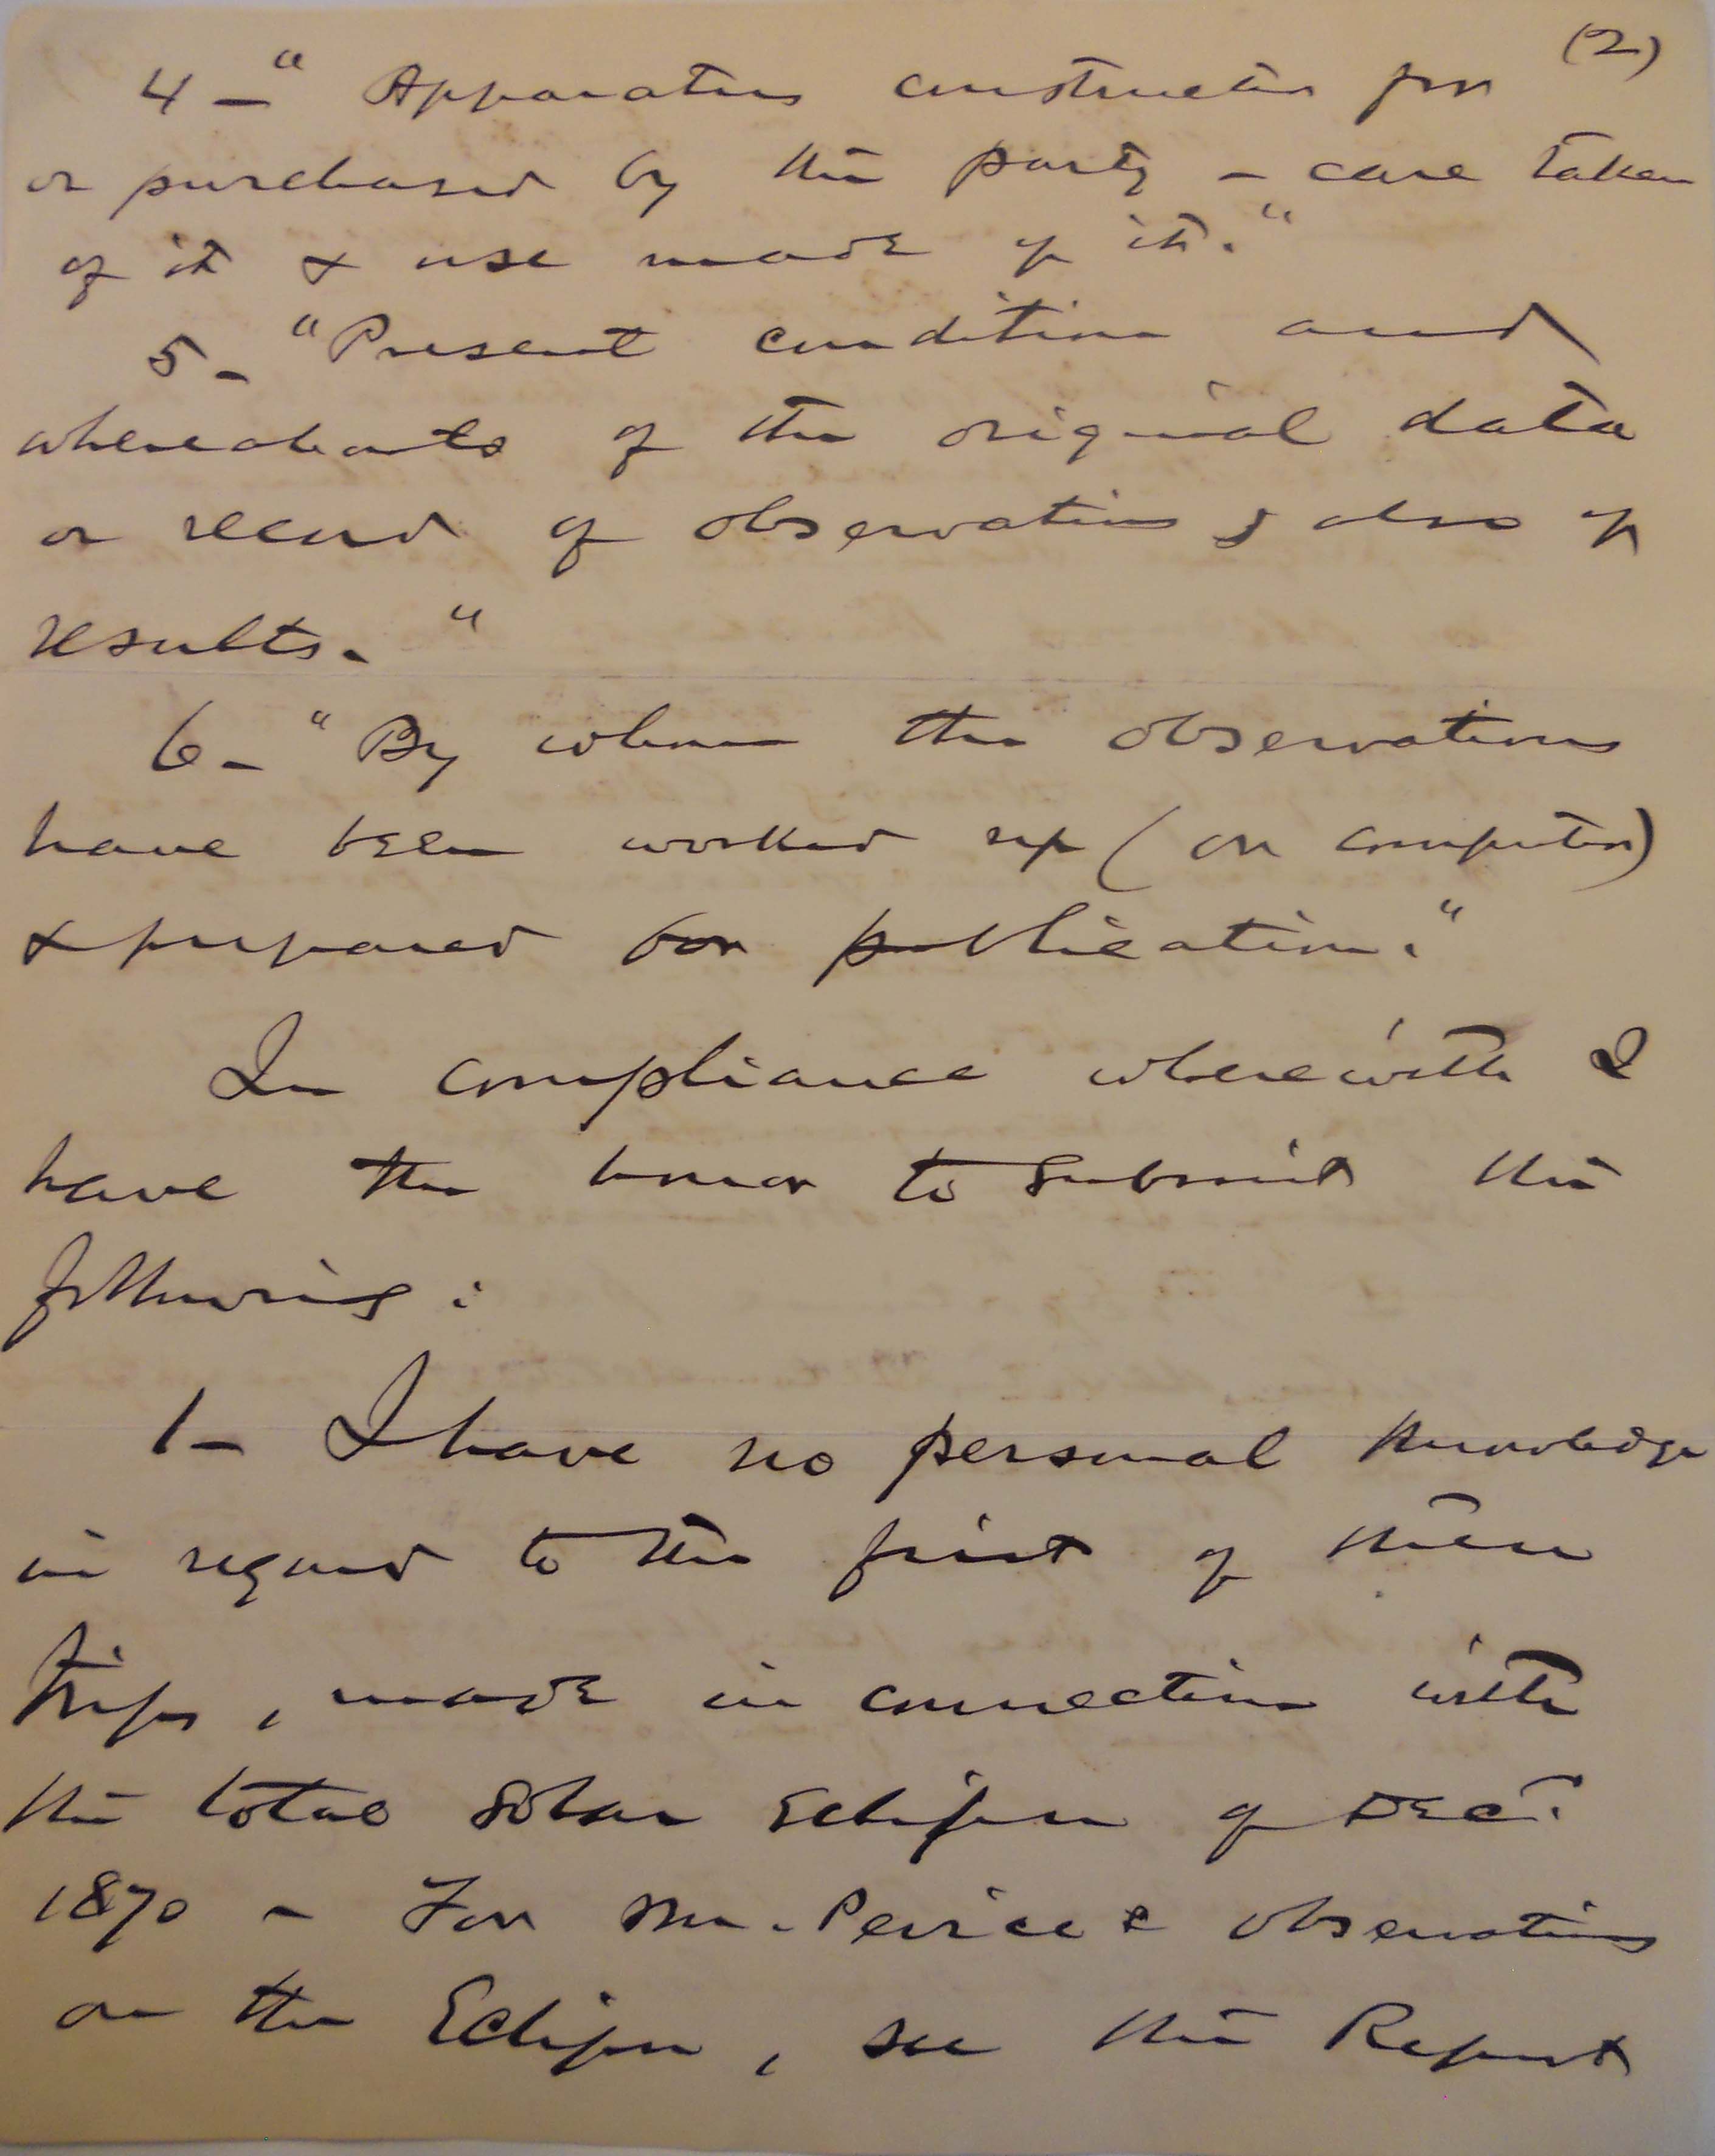 (2)
4 - " Apparatus constructed for
or purchased by the party - care taken
of it & use made of it."
5 - "Present condition and
whereabouts of the original data
or record of observations & also of
results."
6 - "By whom the observations
have been worked up (or computed)
& prepared for publication."
In compliance wherewith I
have the honor to submit the
following:
1 - I have no personal knowledge
in regard to the first of these
trips, made in connection with
the total Solar Eclipse of Dec.
1870 - For Mr. Peirce's observations
on the Eclipse, see the Report